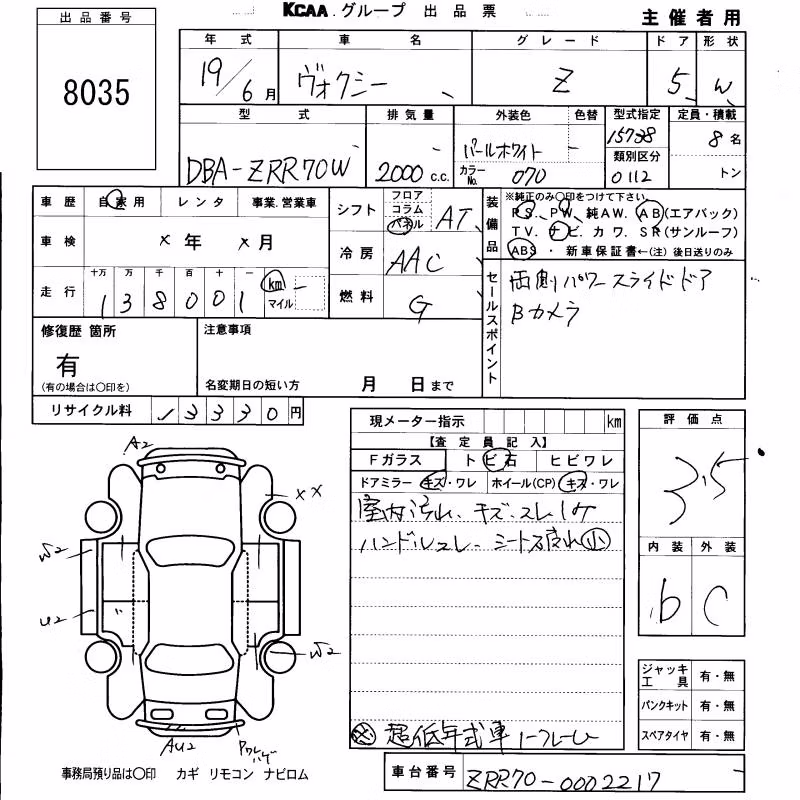 出品番号
8035
KCAA.グループ 出品票
主催者用
年式 車名 グレード ドア 形状
19/6月 ヴォクシー Z 5 W
型式 排気量 外装色 色替 型式指定 定員・積載
DBA-ZRR70W 2000 c.c. パールホワイト 15738 8名
カラーNo. 070 類別区分 0112 トン
車歴 自家用 レンタ 事業.営業車
車検 ×年 ×月
走行 十万 万 千 百 十 一
138001 km マイル
シフト フロア コラム パネル AT
冷房 AAC
燃料 G
装備品 ※純正のみ○印をつけて下さい
PS、PW、純AW、AB(エアバック)
TV、ナビ、カワ、SR(サンルーフ)
ABS ・ 新車保証書←(注)後日送りのみ
セールスポイント
両側パワースライドドア
Bカメラ
修復歴 箇所
有
(有の場合は○印を)
注意事項
名変期日の短い方 月 日まで
リサイクル料 13330円
現メーター指示 km
【査定員記入】
Fガラス トビ石 ヒビワレ
ドアミラー キズ・ワレ ホイール(CP) キズ・ワレ
室内汚れ、キズ、スレ
ハンドルスレ シート 小
超低年式車
評価点
3.5
内装 外装
b C
ジャッキ工具 有・無
パンクキット 有・無
スペアタイヤ 有・無
A2
××
W2
U2
W2
AU2
事務局預り品は○印 カギ リモコン ナビロム
車台番号 ZRR70-0002217